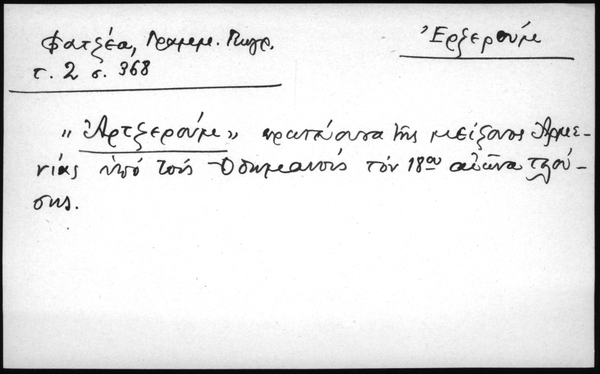 Φατζέα, Γραμμ. Γεωγρ.
τ. 2 σ. 368
Ἐρζερούμ
"Ἀρτζερούμ" πρωτεύουσα τῆς μείζονος Ἀρμε-
νίας ὑπό τούς Ὀθωμανούς τόν 18ον αἰῶνα τελού-
σης.